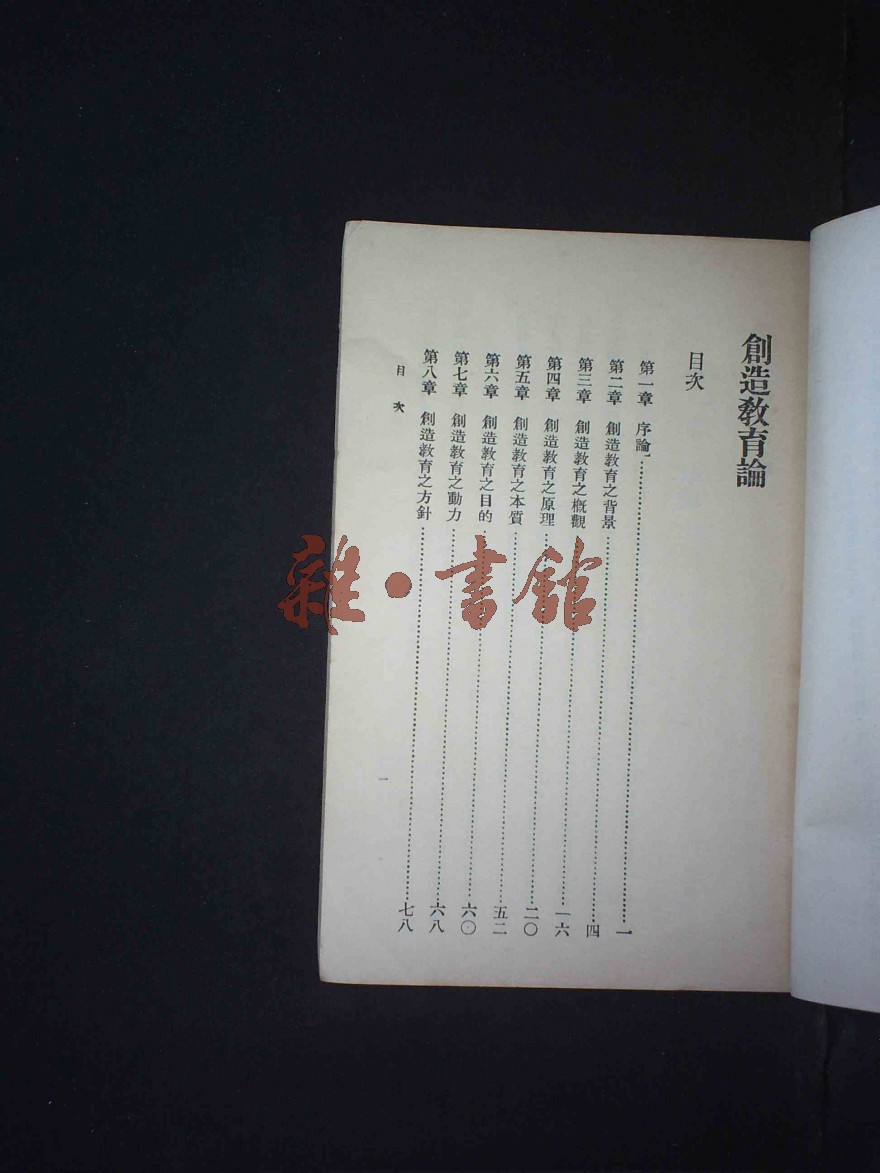 創造教育論
目次
第一章 序論……一
第二章 創造教育之背景……四
第三章 創造教育之概觀……一六
第四章 創造教育之原理……二〇
第五章 創造教育之本質……五二
第六章 創造教育之目的……六〇
第七章 創造教育之動力……六八
第八章 創造教育之方針……七八
目次
一
雜·書館